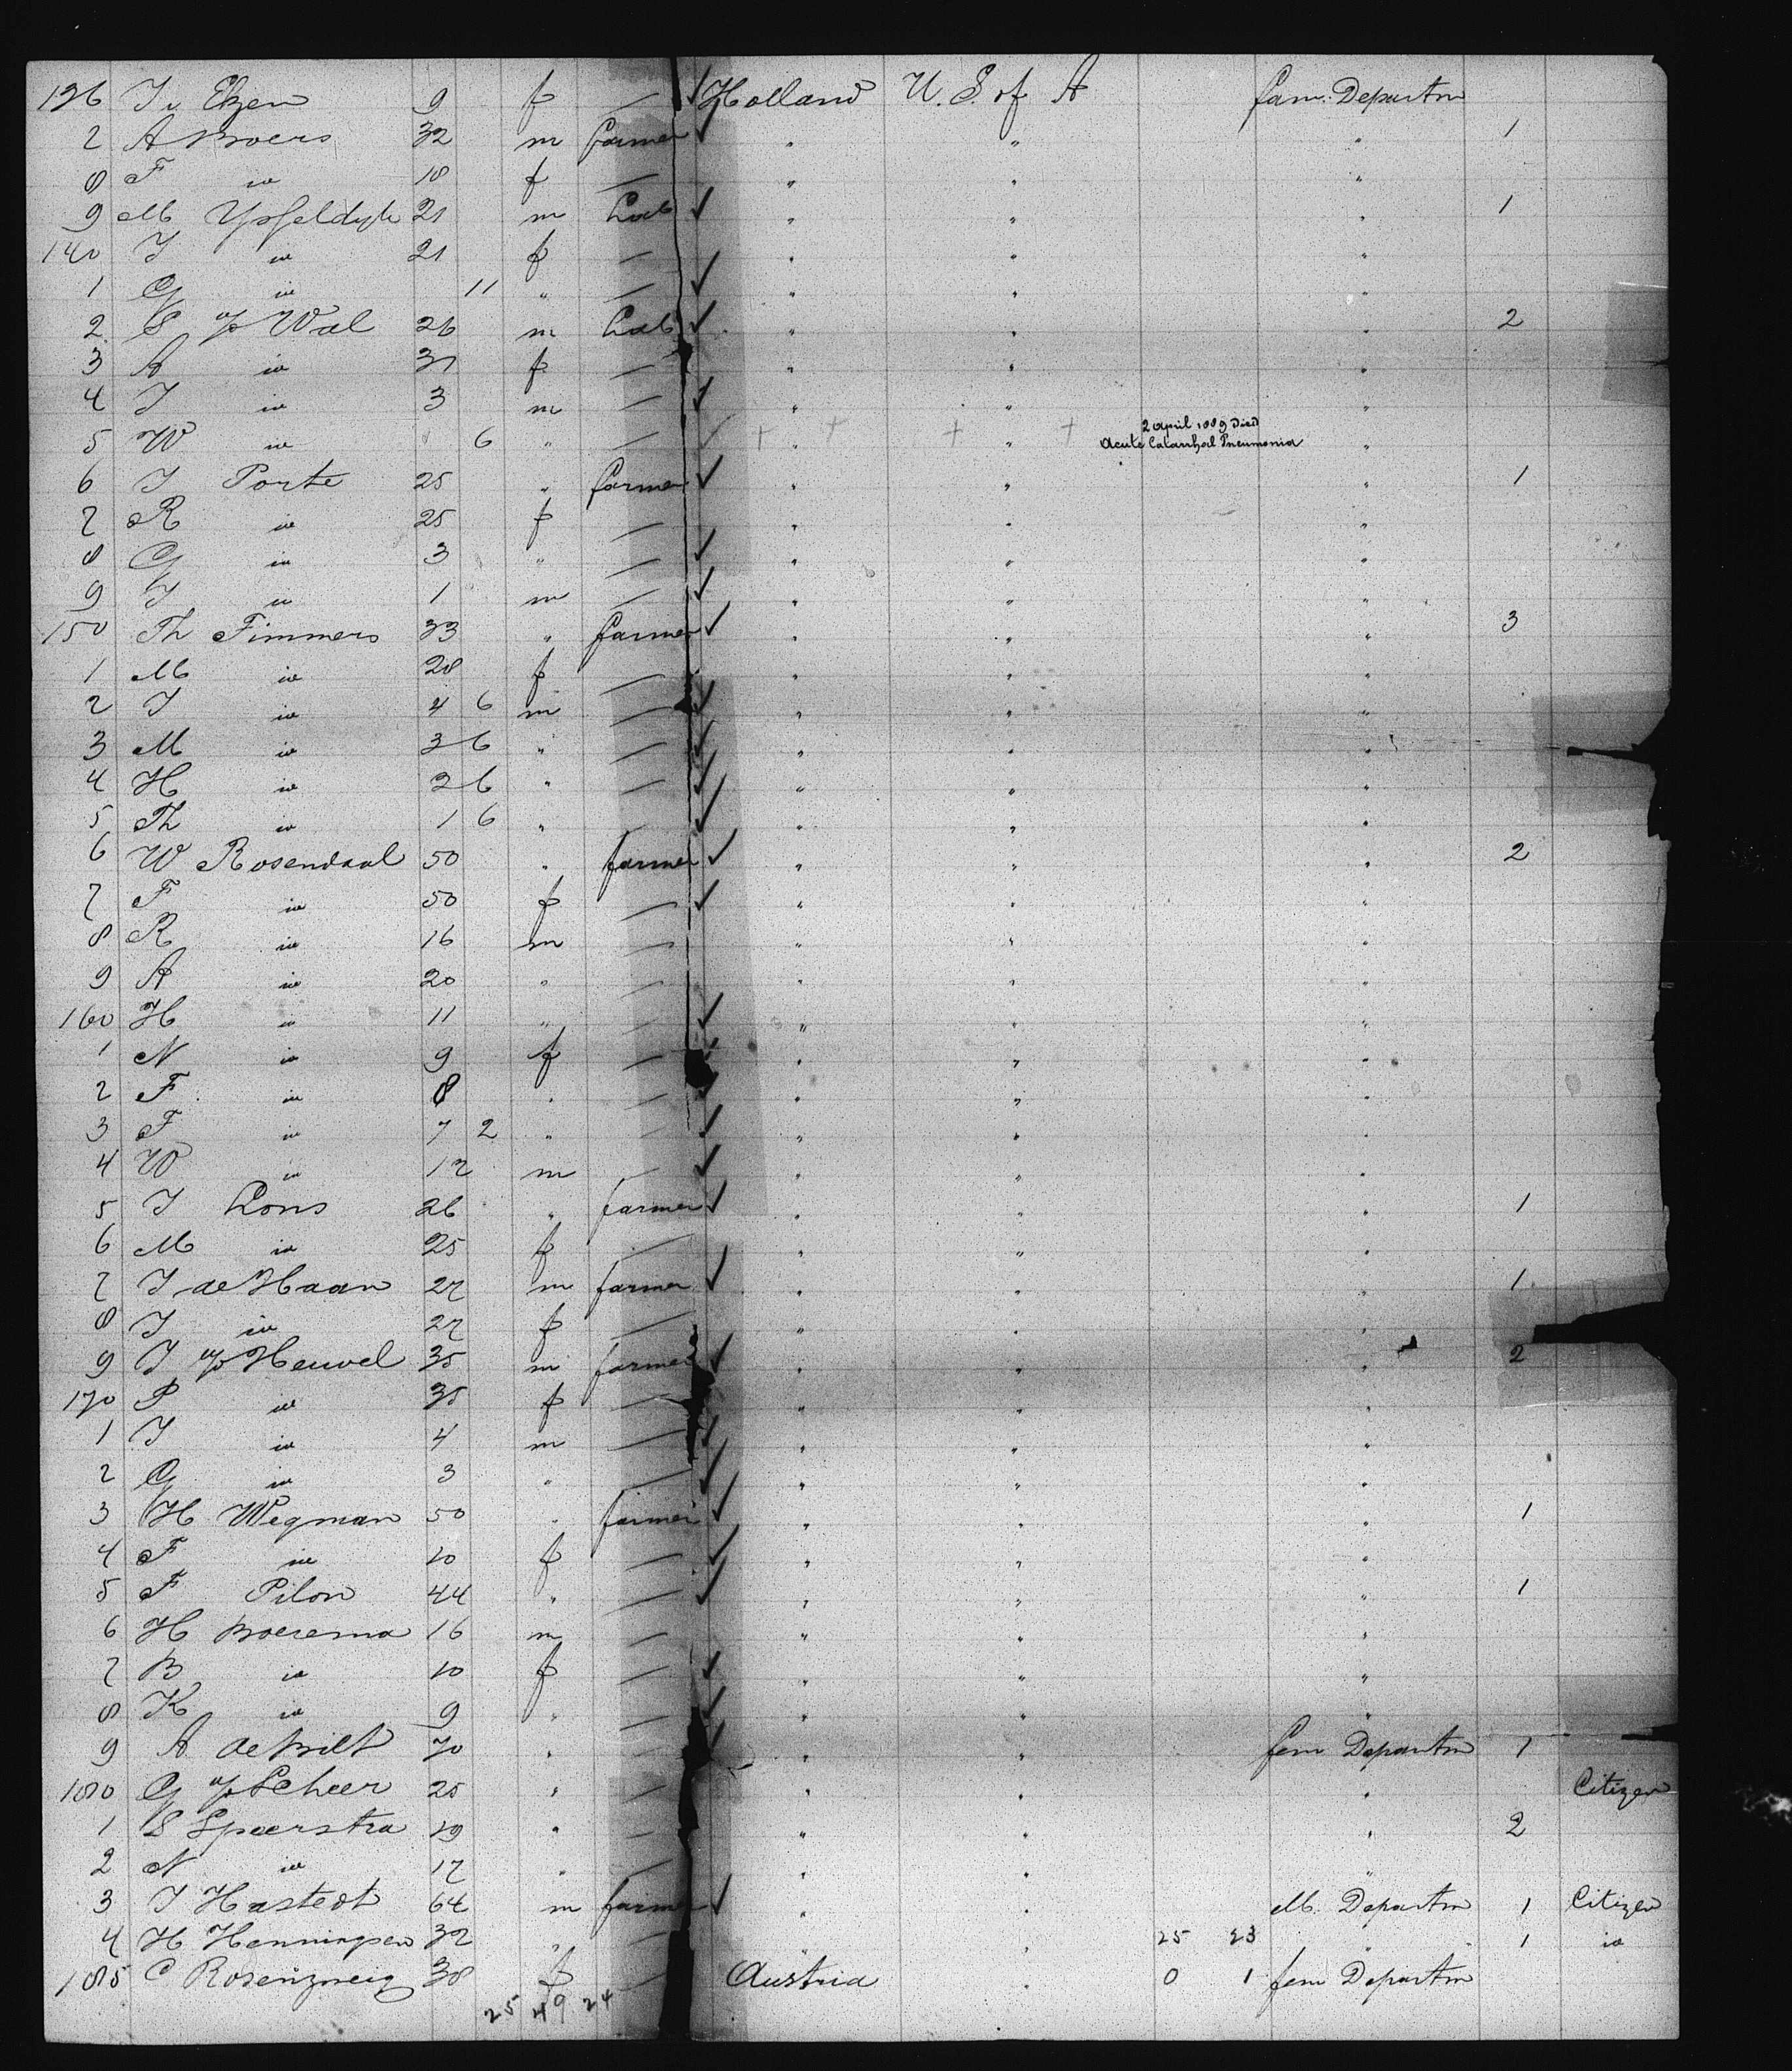 136 J v Elzen 9 f — ✓ Holland U. S. of A fam: Departm
7 A Boers 32 m farmer ✓ " " " 1
8 F id 18 f — " " "
9 M Ysseldyk 21 m Lab ✓ " " " 1
140 J id 21 f — " " "
1 G id 11 " — ✓ " " "
2 S v/d Wal 26 m Lab ✓ " " " 2
3 A id 31 f — " " "
4 J id 3 m — ✓ " " "
2 april 1889 Died
5 W id 6 " — ✓ + + + " + Acute Catarrhal Pneumonia "
6 J Porte 25 " farmer ✓ " " " 1
7 R id 25 f — " " "
8 G id 3 " — ✓ " " "
9 J id 1 m — ✓ " " "
150 Th Timmers 33 " farmer ✓ " " " 3
1 M id 28 f — " " "
2 J id 4 6 m — ✓ " " "
3 M id 3 6 " — ✓ " " "
4 H id 2 6 " — ✓ " " "
5 Th id 1 6 " — ✓ " " "
6 W Rosendaal 50 " farmer ✓ " " " 2
7 F id 50 f — ✓ " " "
8 R id 16 m — " " "
9 A id 20 " — " " "
160 H id 11 " — ✓ " " "
1 N id 9 f — ✓ " " "
2 F id 8 " — ✓ " " "
3 F id 7 2 " — ✓ " " "
4 W id 12 m — ✓ " " "
5 J Lons 26 " farmer ✓ " " " 1
6 M id 25 f — " " "
7 J de Haan 27 m farmer ✓ " " " 1
8 J id 27 f — " " "
9 J v/d Heuvel 35 m farmer ✓ " " " 2
170 P id 35 f — " " "
1 J id 4 m — ✓ " " "
2 G id 3 " — ✓ " " "
3 H Wegman 50 " farmer ✓ " " " 1
4 F id 10 f — ✓ " " "
5 F Pilon 44 " — ✓ " " " 1
6 H Boerema 16 m — " " "
7 B id 10 f — ✓ " " "
8 K id 9 " — ✓ " " "
9 A de Wilt 70 " — ✓ " " fem Departm 1
180 G v/d Scheer 25 " — " " " Citizen
1 S Speerstra 19 " — " " " 2
2 N id 17 " — " " "
3 J Hastedt 64 m farmer ✓ " " M. Departm 1 Citizen
4 H Henningsen 32 " — " " 25 23 " 1 id
185 C Rosenzweig 38 f — Austria " 0 1 fem Departm
25 49 24